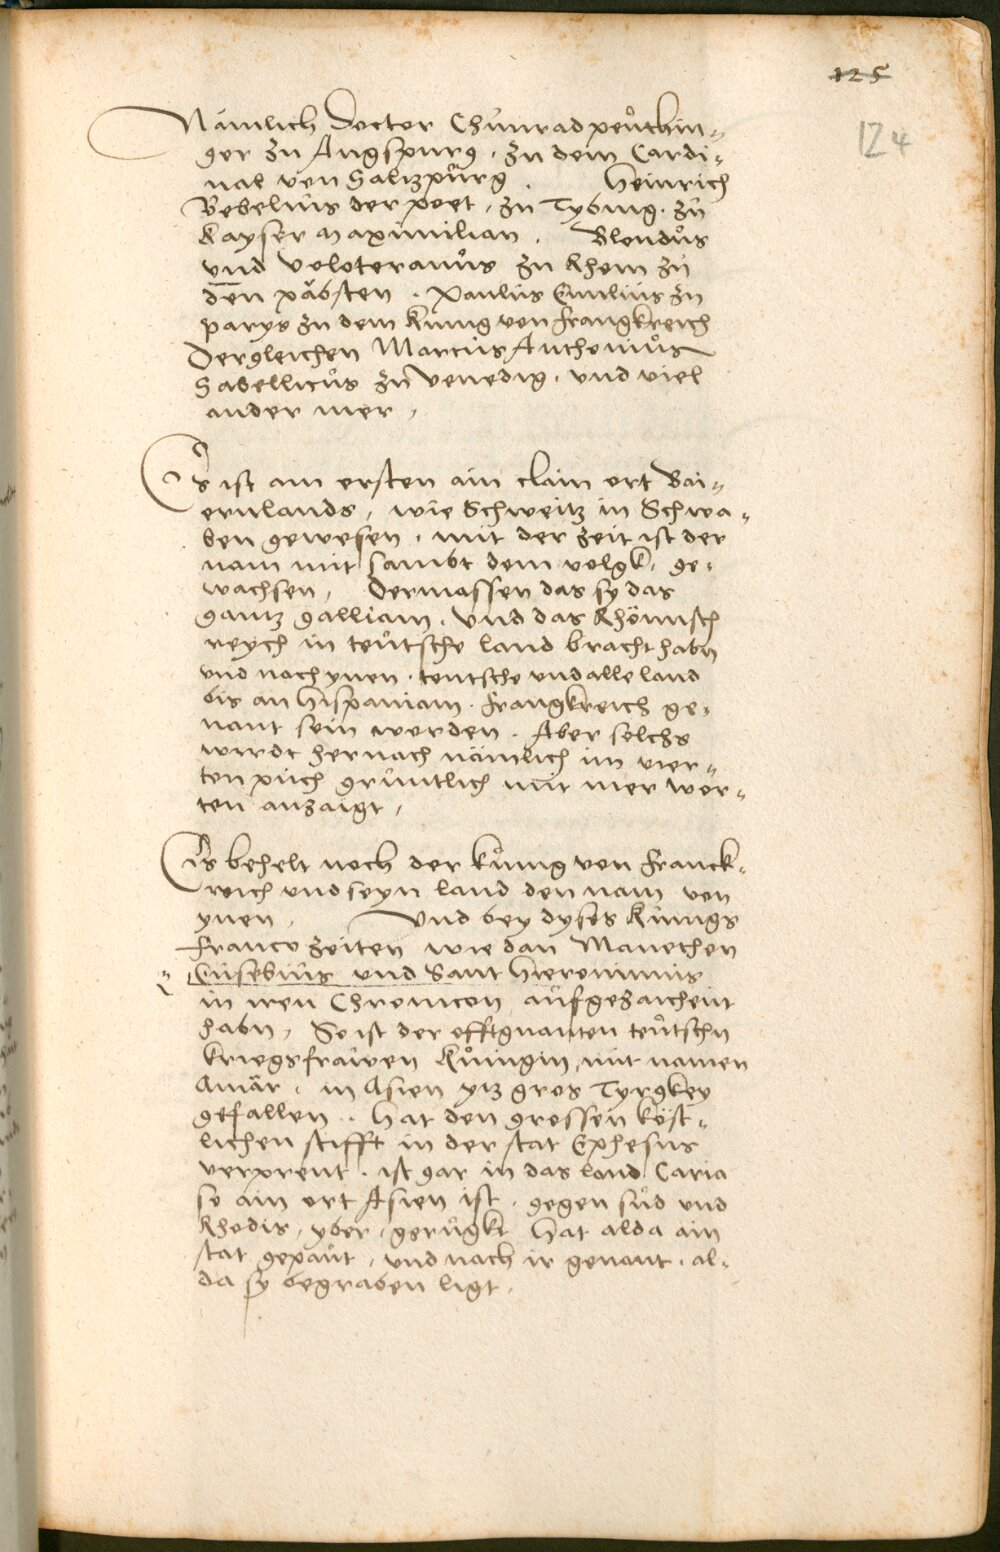 125
124
Nämlich doctor Chunrad peůthin„
ger zu Augspurg, zu dem Cardi„
nal von Saltzpurg. Heinrich
Bebelius der poet, zu Tybing. zů
Kayser maximilian. Blondůs
und volateranůs zu Rhom zu
den päbsten. Paulus Emilius zu
parys zu dem kunig von frangkreich
Dergleichen Marcus Anthoniůs
Sabellicůs zu Venedig, und viel
ander mer,
Es ist am ersten ain clain ort Bai„
ernlands, wie Schweitz in Schwa„
ben gewesen, mit der zeit ist der
nam mit sambt dem volgk, ge„
wachsen, dermassen das sy das
gantz galliam, und das Rhömisch
reych in teůtsche land bracht habn
und noch ynen, teutsche und alle land
bis an hispaniam. frangkreich ge„
nant sein worden. Aber solchs
wirdt hernach nämlich im vier„
ten půch grůntlich mit mer wor„
ten anzaigt,
Es behelt noch der kůnig von franck„
reich und seyn land den nam von
ynen. Und bey dyses kunigs
franco zeiten wie dan Manethon
Eusebius und Sant Hieronimus
in iren Chronicon aufgezaichent
habn, So ist der offtgnanten teůtschn
kriegsfrawen Kůnigin, mit namen
Amär, in Asien ytz gros Tyrgkey
gefallen. hat den grossen köst„
lichen stifft in der stat Ephesus
verprent, ist gar in das land Caria
so ain ort Asien ist, gegen sůd und
Rhodis, yber, gerůgkt hat alda ain
stat gepaůt, und nach ir genant, al„
da sy begraben ligt.